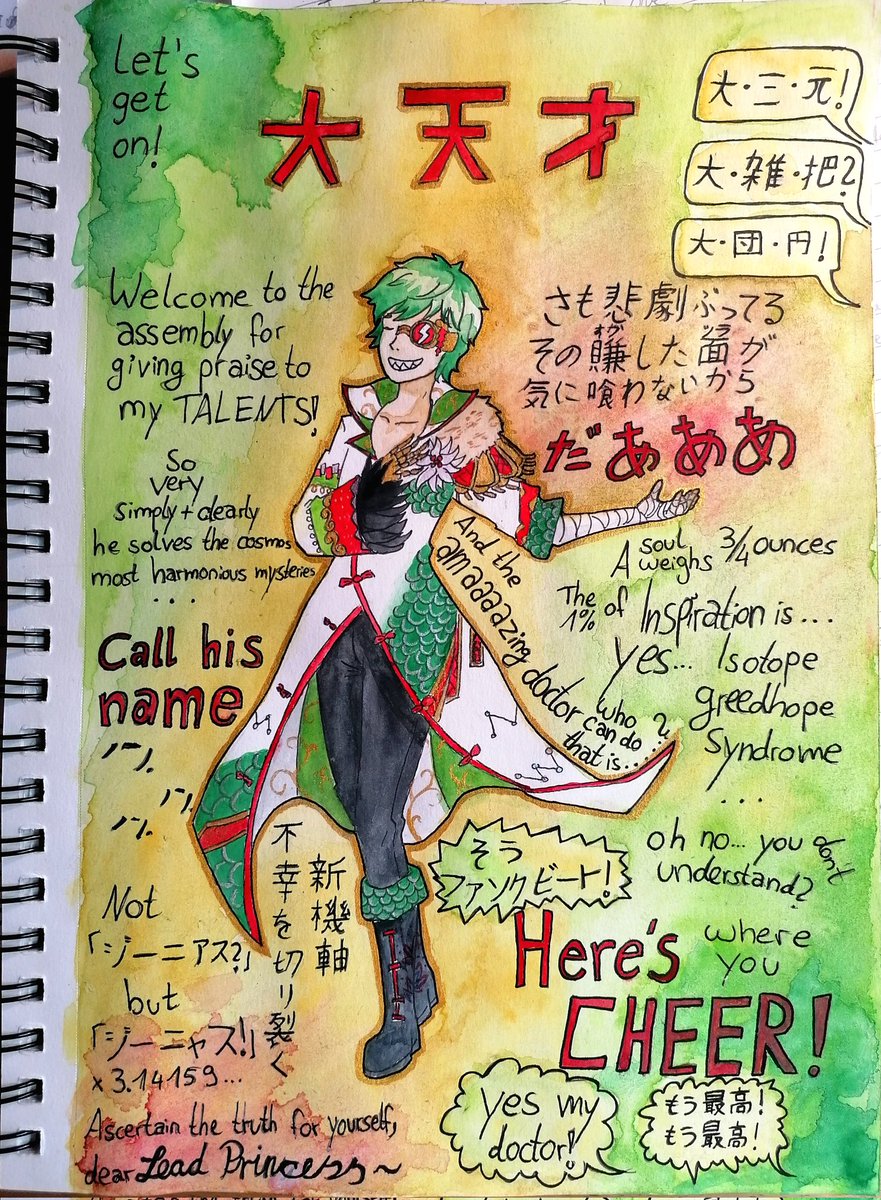 Let's
get
on!
大天才
大・三・元!
大・雑・把?
大・団・円!
Welcome to the
assembly for
giving praise to
my TALENTS!
さも悲劇ぶってる
すが
つら
その賺した面が
気に喰わないから
だぁああ
So
very
simply + clearly
he solves the cosmos
most harmonious mysteries
...
And the
amaaaazing doctor who
can do...
that is...?
A soul
weighs 3/4 ounces
The
1% of Inspiration is...
yes... Isotope
greedhope
Syndrome
...
oh no... you don't
understand?
Call his
name
新機軸
不幸を切り裂く
そう
ファンクビート!
Not
「ジーニアス?」
but
「ジーニャス!」
x 3.14159...
Here's where
you
CHEER!
Ascertain the truth for yourself,
dear Lead Princess~
yes my
doctor!
もう最高!
もう最高!